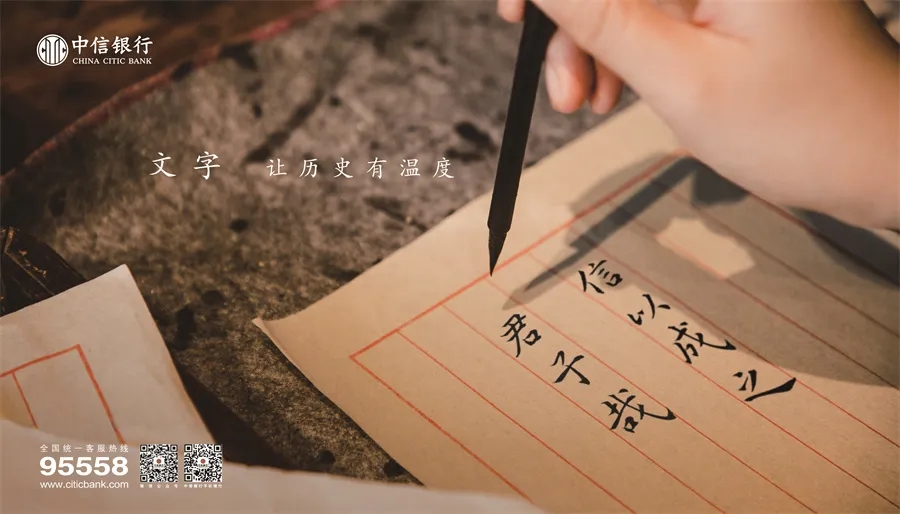 中信银行
CHINA CITIC BANK
文字 让历史有温度
信以成之
君子哉
全国统一客服热线
95558
www.citicbank.com